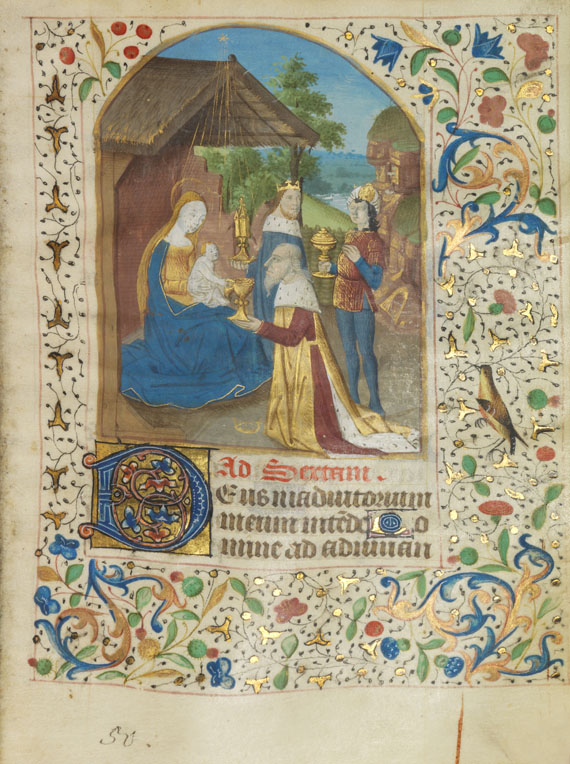 Ad Sextam.
Eus in adiutorium
meum intēde Do
mine ad adiuuan